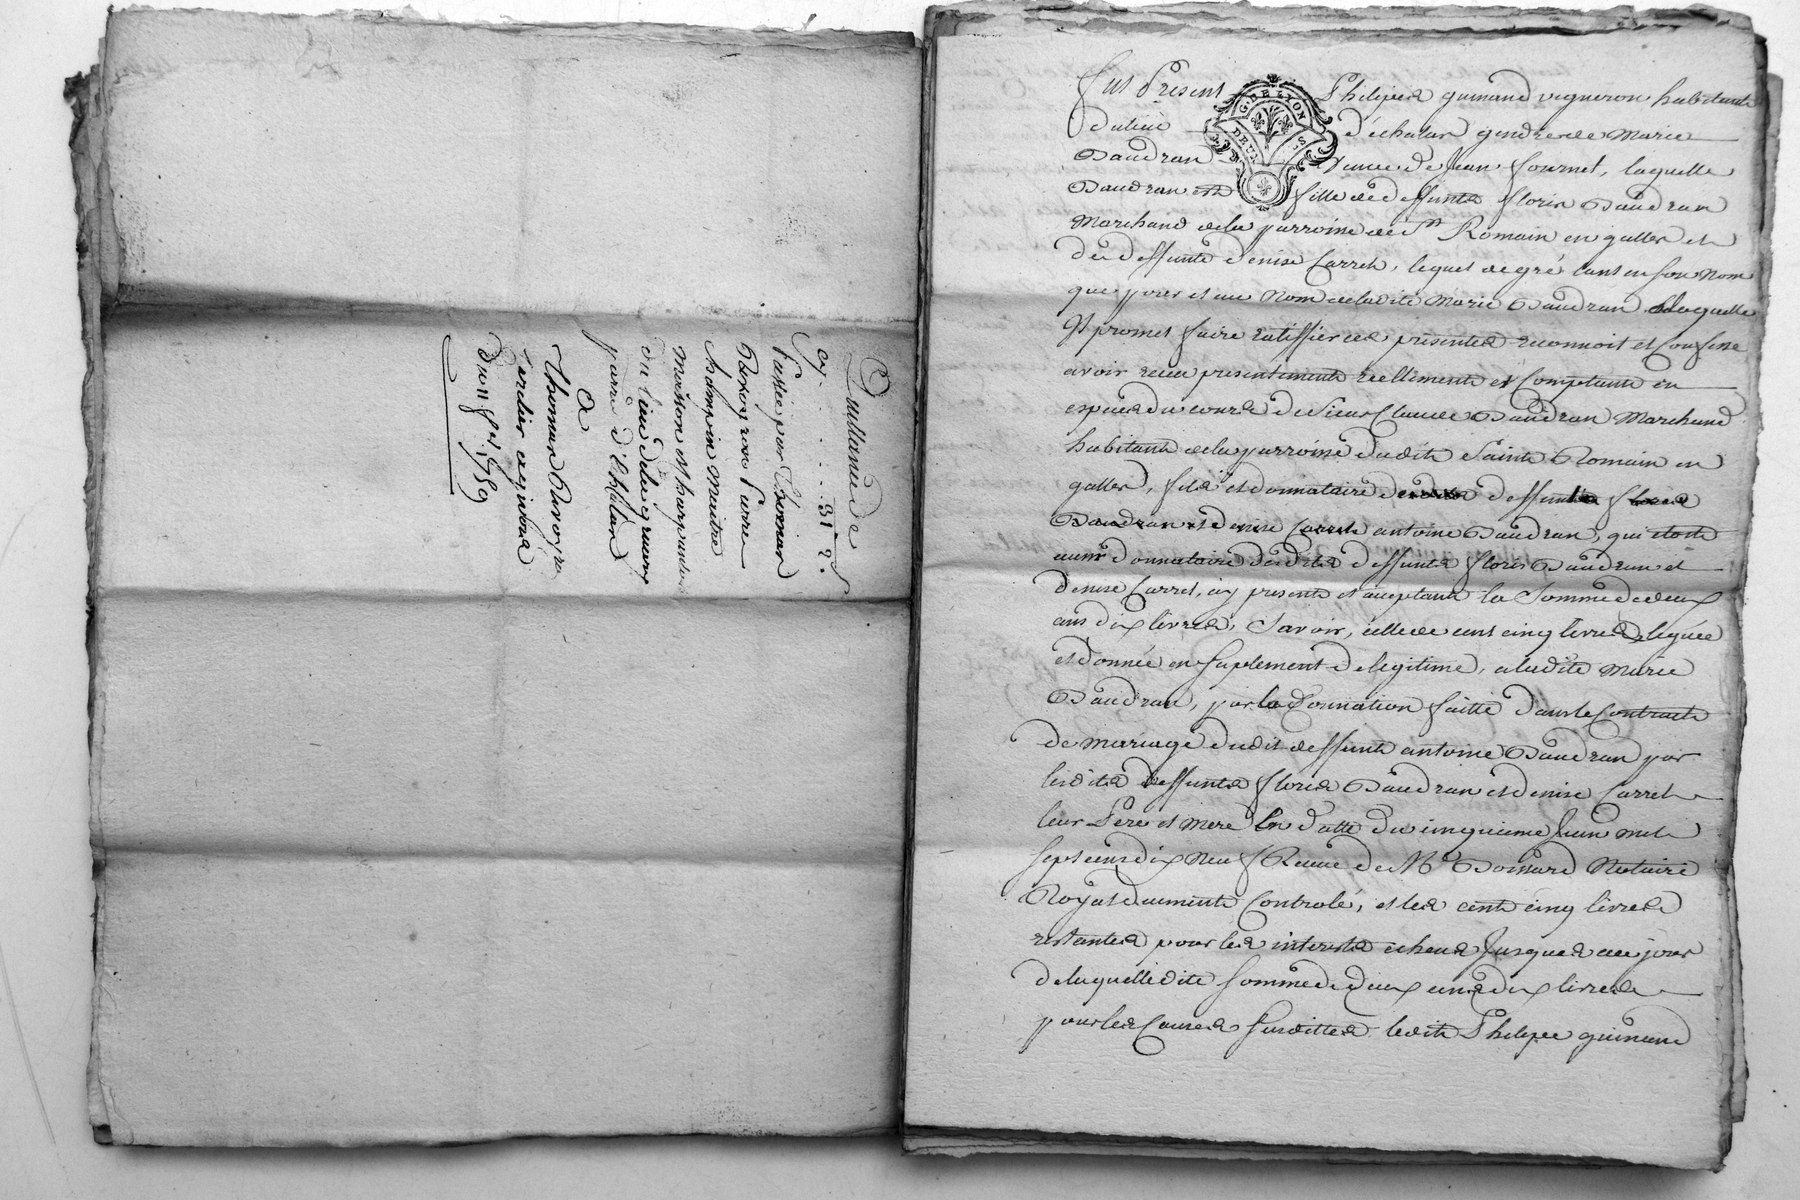 Quittance de
cy . . . . . 31 # 2 s
Passée par Thomas
Ravoyron Pierre
Maitre
Masson et charpentier
du lieu de la
parre d'Echalas
a
Thomas
Du 11 1759
Fut Present Philipe guinand vigneron habitant
du lieu d'échalas gendre de Marie
Baudran Veuve de Jean fournel, laquelle
Baudran est fille de deffunts floris Baudran
Marchand de la parroisse de St Romain en galles et
de deffunte denise Carret, lequel de gré tant en son Nom
que pour et au Nom de ladite Marie Baudran a laquelle
Il promet faire ratiffier ces présentes reconnoit et Confesse
avoir receu presentement reellement et Comptant en
espèces du cours de Sieur Claude Baudran Marchand
habitant de la parroisse dudit Saint Romain en
galles, fils et donnataire deffunts floris
Baudran et denise Carret antoine Baudran, qui etoit
aussi donnataire desdits deffunts floris Baudran et
denise Carret, cy present et aceptant la Somme de deux
cens dix livres, Savoir, celle de cent cinq livres leguée
et donnée en suplement de legitime, a ladite Marie
Baudran, par la Donnation faitte dans le Contract
de mariage dudit deffunt antoine Baudran par
lesdits deffunts floris Baudran et denise Carret
leur Pere et Mere en datte du cinquieme Juin mil
sept cens dix Neuf Receue de Me Notaire
Royal dument Controlé, et les cent cinq livres
restantes pour les interets echeus Jusques a ce jour
de laquelle dite somme de deux cens dix livres
pour les Causes susdittes ledit Philipe guinand
G. DE LYON
DEUX S